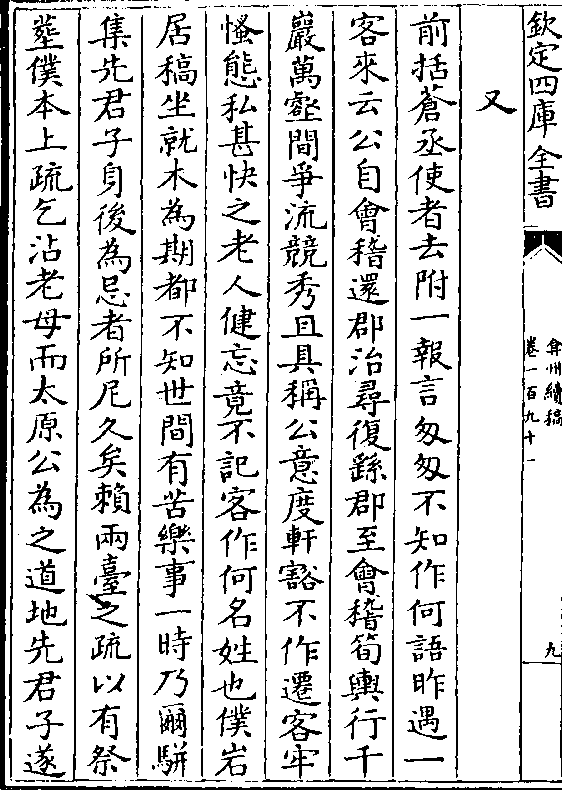 欽定四庫全書
弇州續稿
卷一百九十一
九
又
前括蒼丞使者去附一報言匆匆不知作何語昨遇一
客來云公自會稽還郡治尋復繇郡至會稽筍輿行千
巖萬壑間爭流競秀且具稱公意度軒豁不作遷客牢
慅態私甚快之老人健忘竟不記客作何名姓也僕岩
居稿坐就木為期都不知世間有苦樂事一時乃爾駢
集先君子身後為忌者所尼久矣賴兩臺之疏以有祭
塟僕本上疏乞沾老母而太原公為之道地先君子遂